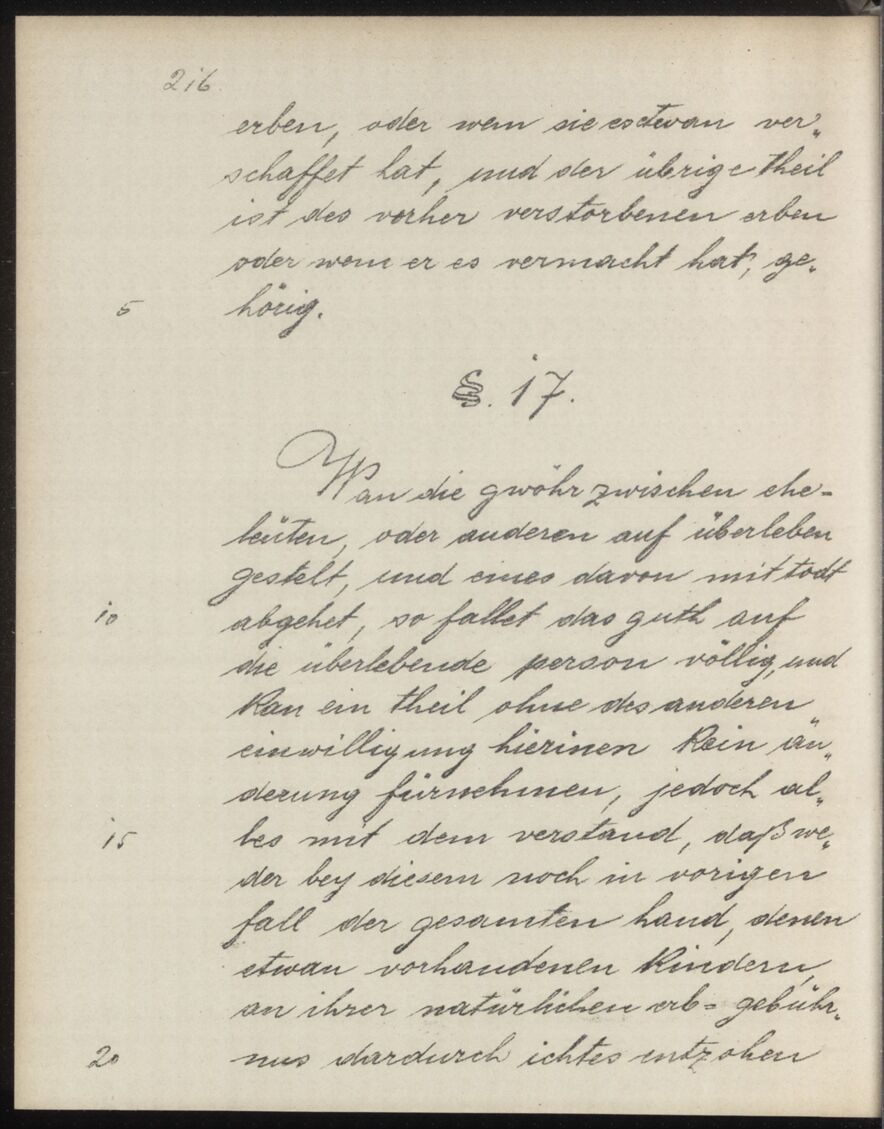 216.
erben, oder wem sie es etwan ver„
schaffet hat, und der übrige theil
ist des vorher verstorbenen erben
oder wem er es vermacht hat, ge„
5 hörig.
§. 17.
Wan die gwöhr zwischen ehe=
leüten, oder anderen auf überleben
gestelt, und eines davon mit todt
10 abgehet, so fallet das guth auf
die überlebende person völlig, und
kan ein theil ohne des anderen
einwilligung hierinen kein än„
derung fürnehmen, jedoch al„
15 les mit dem verstand, daß we„
der bey diesem noch in vorigen
fall der gesamten hand, denen
etwan vorhandenen kindern,
an ihrer natürlichen erb= gebühr„
20 nus dardurch ichtes entzohen